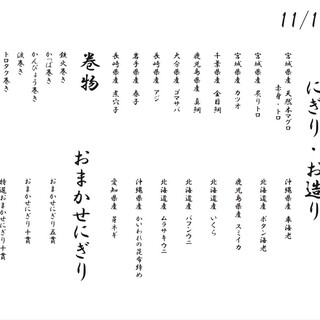 11/1
にぎり・お造り
宮城県産 天然本マグロ
赤身・トロ
宮城県産 炙りトロ
宮城県産 カツオ
千葉県産 金目鯛
鹿児島県産 真鯛
大分県産 ゴマサバ
長崎県産 アジ
岩手県産 春子
長崎県産 煮穴子
沖縄県産 車海老
北海道産 ボタン海老
鹿児島県産 スミイカ
北海道産 いくら
北海道産 バフンウニ
北海道産 ムラサキウニ
沖縄県産 かいわれの昆布締め
愛知県産 芽ネギ
巻物
鉄火巻き
かっぱ巻き
かんぴょう巻き
涙巻き
トロタク巻き
おまかせにぎり
おまかせにぎり五貫
おまかせにぎり十貫
特選おまかせにぎり十貫